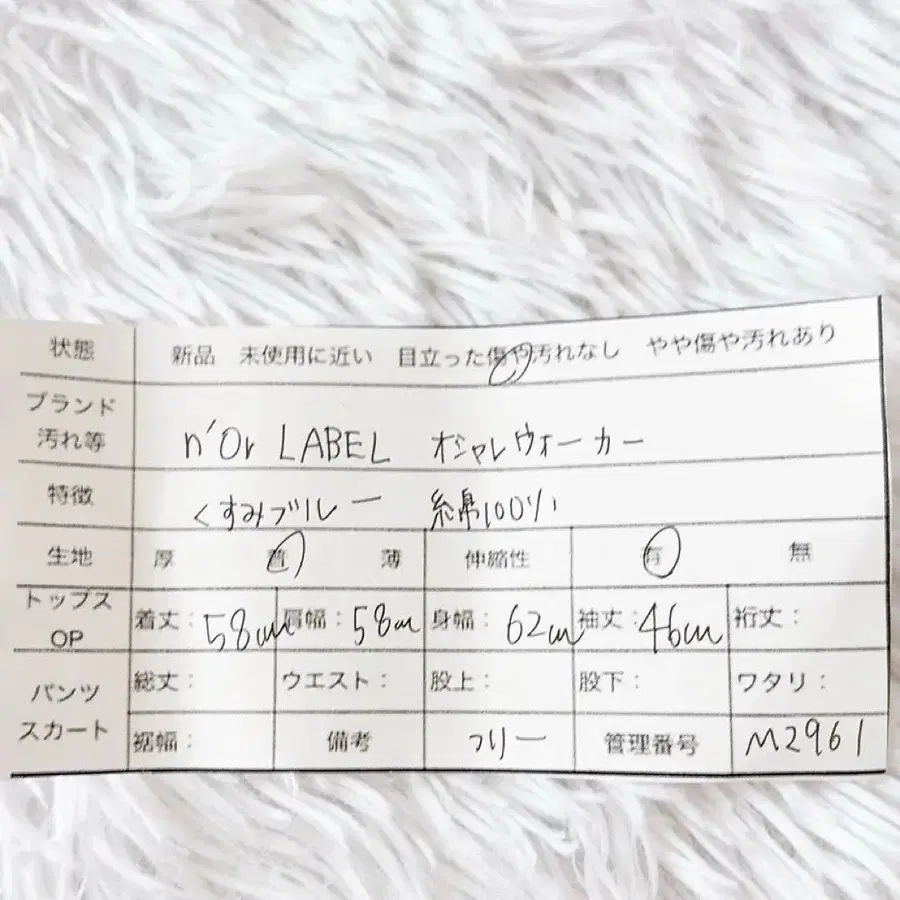 状態 新品 未使用に近い 目立った傷や汚れなし やや傷や汚れあり
ブランド
汚れ等 n'Or LABEL オシャレウォーカー
特徴 くすみブルー 綿100%
生地 厚 普 薄 伸縮性 有 無
トップス
OP 着丈: 58cm 肩幅: 58cm 身幅: 62cm 袖丈: 46cm 裄丈:
パンツ
スカート 総丈: ウエスト: 股上: 股下: ワタリ:
裾幅: 備考 フリー 管理番号 M2961